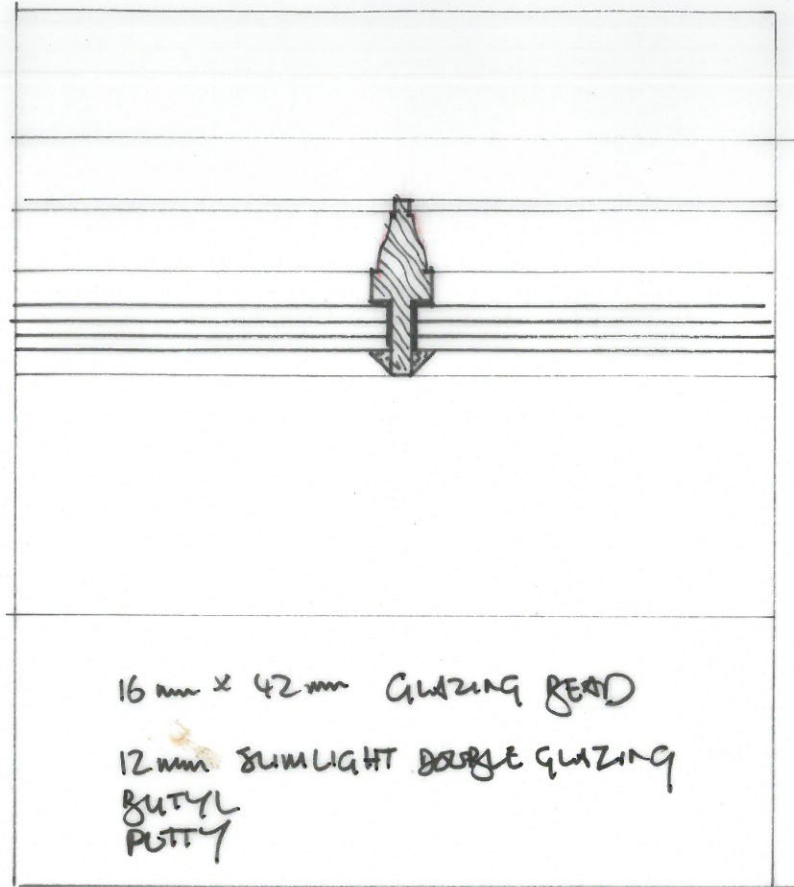 16 mm x 42 mm GLAZING BEAD
12 mm SLIMLIGHT DOUBLE GLAZING
BUTYL
PUTTY